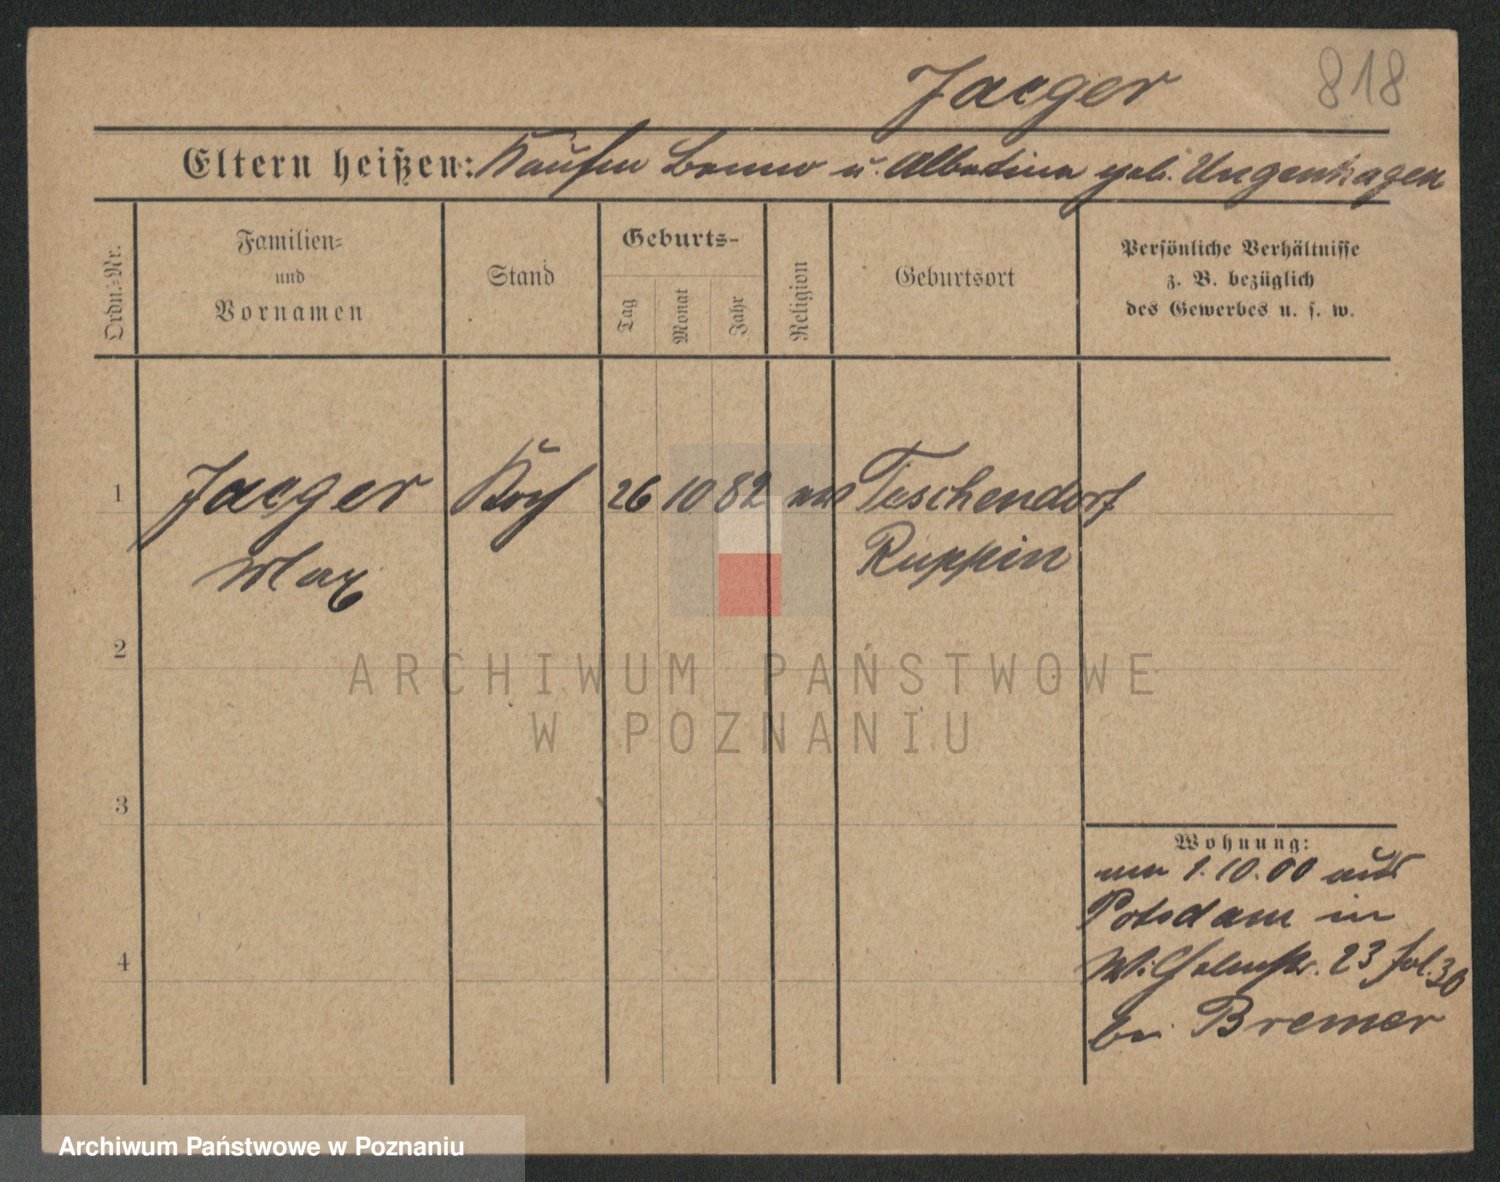 Jaeger 818
Eltern heißen: Kaufm Benno u. Albertina geb. Ungenhagen
Ordn.-Nr.
Familien-
und
Vornamen
Stand
Geburts-
Tag
Monat
Jahr
Religion
Geburtsort
Persönliche Verhältnisse
z. B. bezüglich
des Gewerbes u. s. w.
1 Jaeger Koch 26 10 82 Teschendorf
Max Ruppin
2
ARCHIWUM PAŃSTWOWE
W POZNANIU
3
Wohnung:
1.10.00 aus
Potsdam in
4 Wilhelmstr. 23
bei Bremer
Archiwum Państwowe w Poznaniu